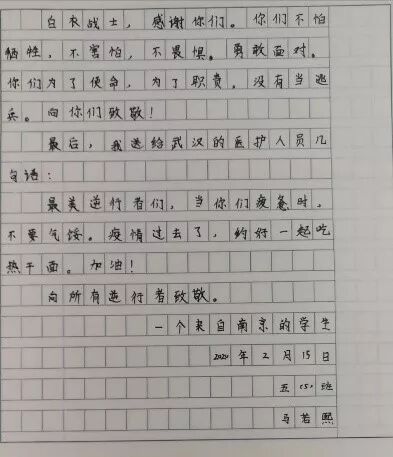 白衣战士，感谢你们。你们不怕
牺牲，不害怕，不畏惧。勇敢面对。
你们为了使命，为了职责。没有当逃
兵。向你们致敬！
最后，我送给武汉的医护人员几
句话：
最美逆行者们，当你们疲惫时，
不要气馁。疫情过去了，约好一起吃
热干面。加油！
向所有逆行者致敬。
一个来自南京的学生
2020年2月15日
五（5）班
马若熙